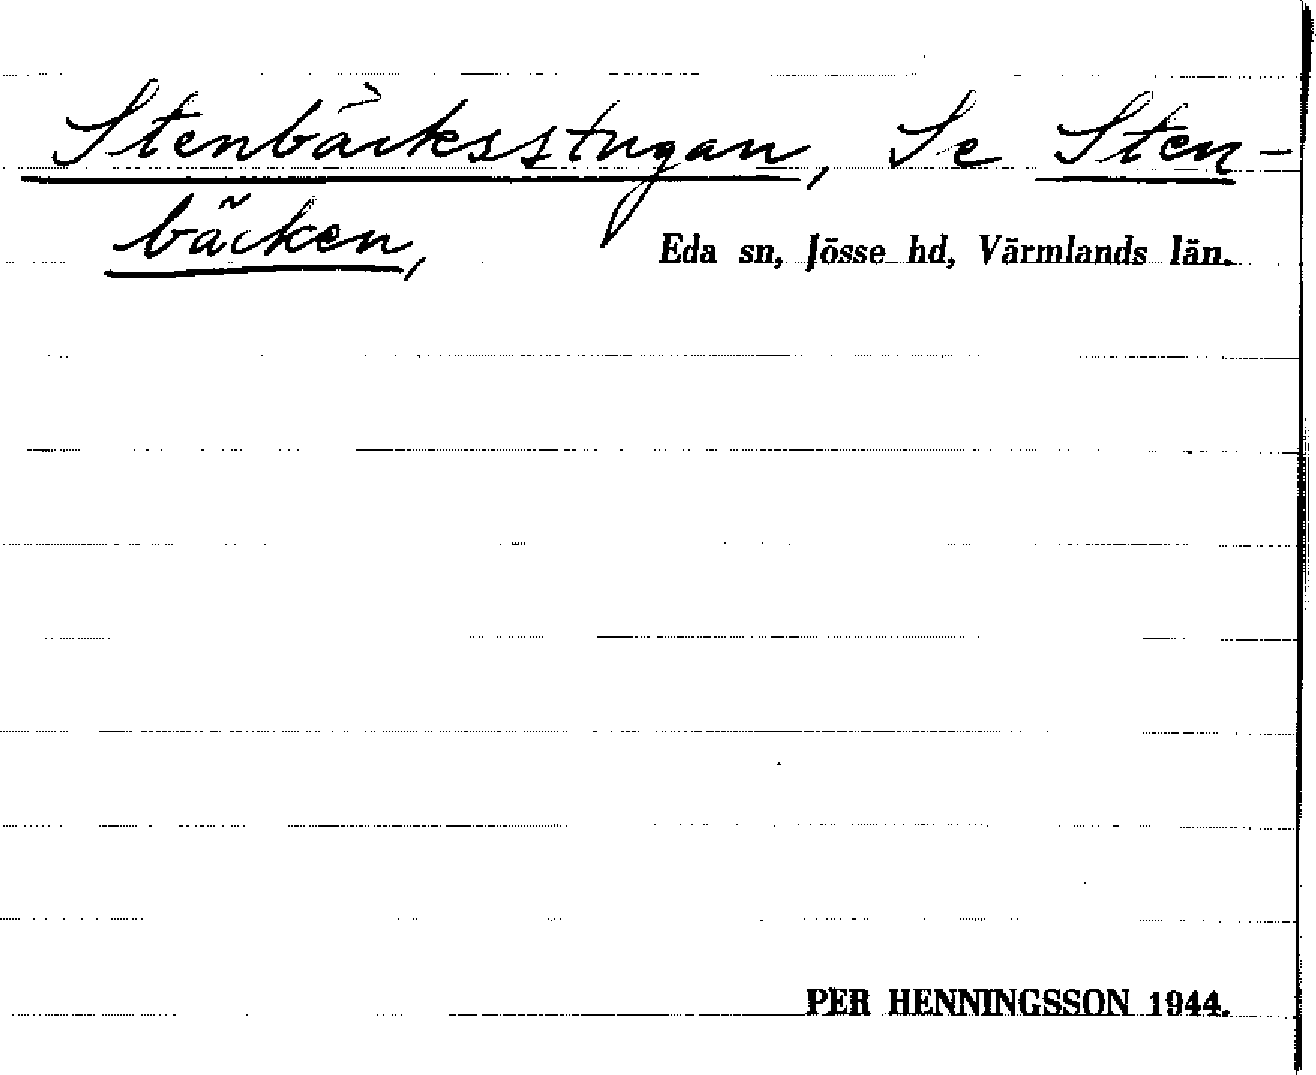 Stenbäcksstugan, Se Sten-
bäcken,
Eda sn, Jösse hd, Värmlands län.
PER HENNINGSSON 1944.